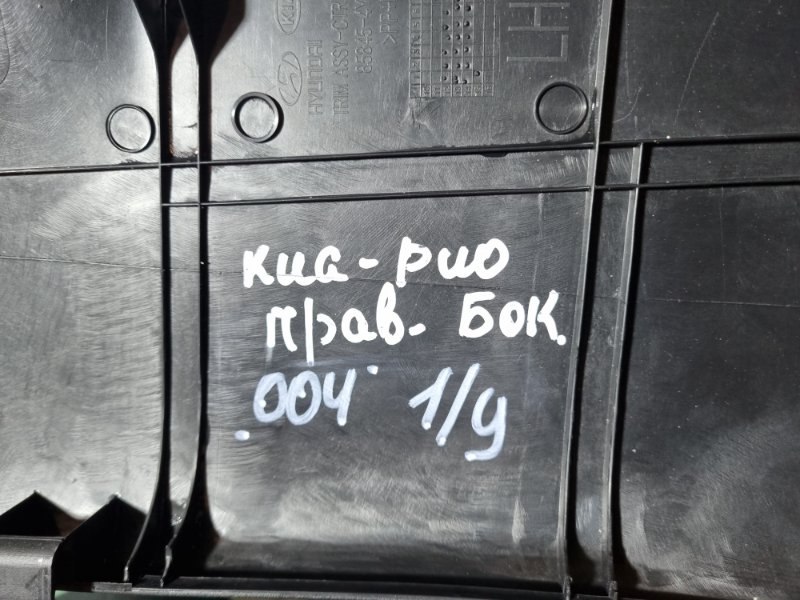 HYUNDAI
TRIM ASSY-CTR
LH
киа-рио
прав. БОК.
.004 1/9